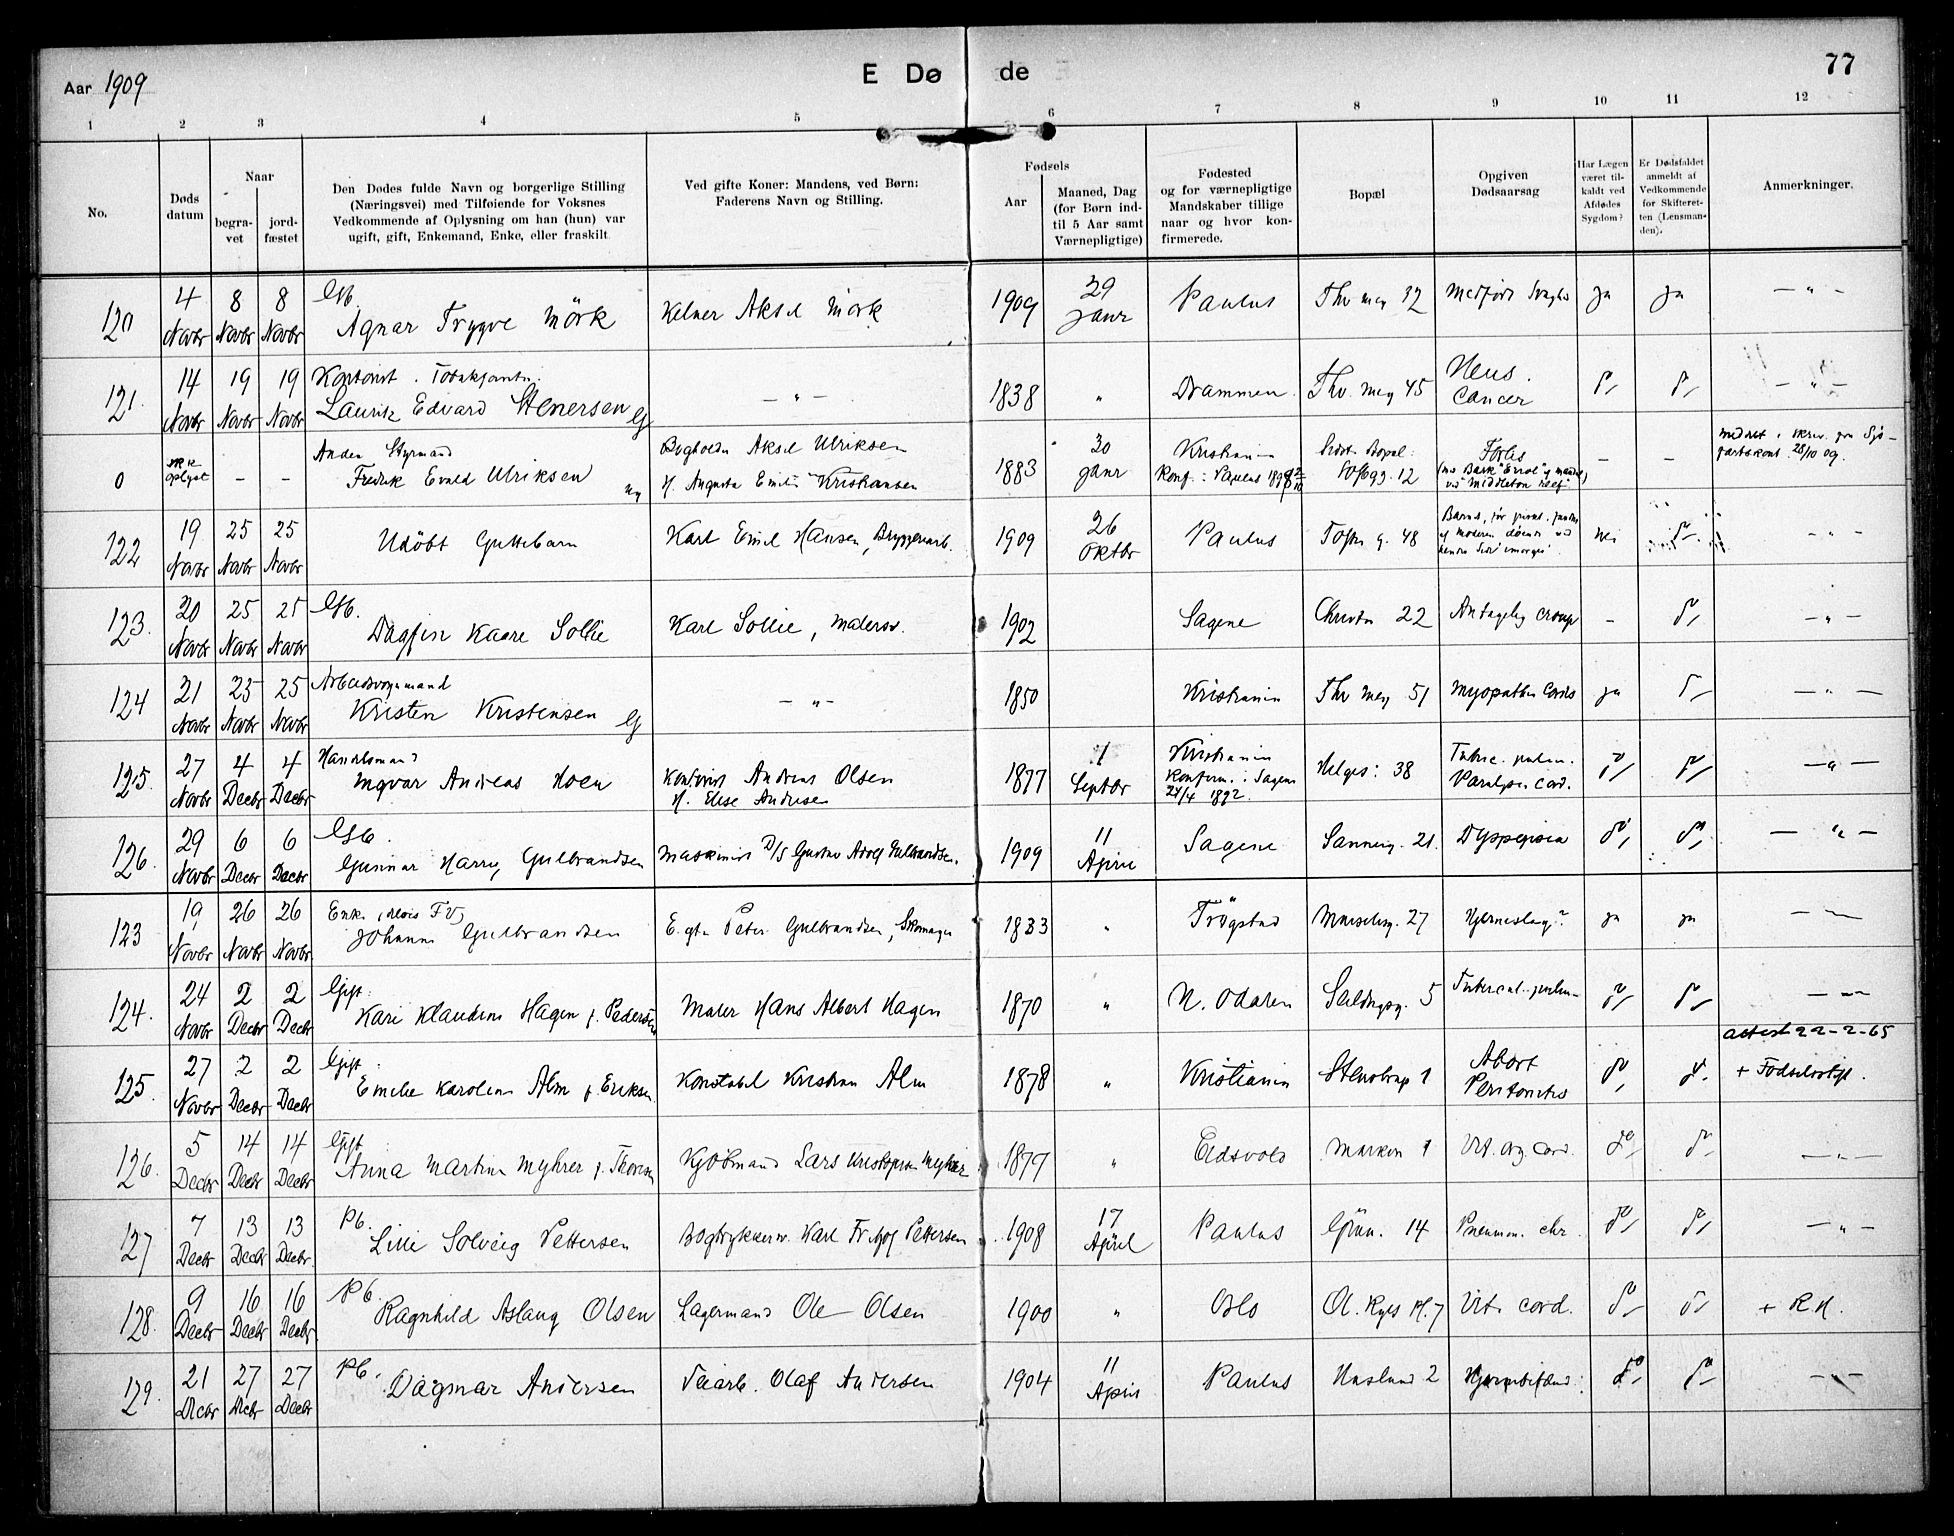 Aar 1909 E Dø de 77
1 2 3 4 5 6 7 8 9 10 11 12
No.
Døds datum
Naar
begra-vet
jord-fæstet
Den Dødes fulde Navn og borgerlige Stilling
(Næringsvei) med Tilføiende for Voksnes
Vedkommende af Oplysning om han (hun) var
ugift, gift, Enkemand, Enke, eller fraskilt
Ved gifte Koner: Mandens, ved Børn:
Faderens Navn og Stilling.
Fødsels
Aar
Maaned, Dag
(for Børn ind-
til 5 Aar samt
Værnepligtige)
Fødested
og for værnepligtige
Mandskaber tillige
naar og hvor kon-
firmerede.
Bopæl
Opgiven
Dødsaarsag
Har Lægen
været til-
kaldt ved
Afdødes
Sygdom?
Er Dødsfaldet
anmeldt af
Vedkommende
for Skifteret-
ten (Lensman-
den).
Anmerkninger.
120 4 Novbr 8 Novbr 8 Novbr Gb. Agnar Trygve Mörk Kelner Aksel Mörk 1909 29 Janr Paulus Thv mey 32 Medfödt Svaghed ja ja — " —
121. 14 Novbr 19 Novbr 19 Novbr Kartonist. Laurits Edvard Stenersen G — " — 1838 " Drammen. Thv. mey 45 Cancer do do — " —
0 ikke oplyst - - Anden Styrmand Fredrik Evald Ulriksen ug Bogholder Aksel Ulriksen H. Augusta Emilie Kristiansen 1883 30 Janr Kristiania Konf. i Paulus Sidste Bopæl: Toftegg. 12 Forlis (m/s Bark "Errol" ved "Middleton reef") — —
122 19 Novbr 25 Novbr 25 Novbr Udöbt Guttebarn Karl Emil Hansen, Bryggeriarb. 1909 26 Oktbr Paulus Tofte g. 48 nei do - " -
123. 20 Novbr 25 Novbr 25 Novbr Gb. Dagfin Kaare Sollie Karl Sollie, Malersv. 1902 Sagene Christies 22 Antagelig croup - do - " -
124 21 Novbr 25 Novbr 25 Novbr Arbeidsvognmand Kristen Kristensen G — " — 1850 Kristiania Thv mey 51 Myopathia Cordis ja do — " —
125. 27 Novbr 4 Decbr 4 Decbr Handelsmand Ingvar Andreas Hoen Kontorist Andreas Olsen H. Elise Andersen 1877 1 Septbr Kristiania Konfirm. i Sagene 24/4 1892. Helges: 38 Tuberc. pulm. Paralysis cord. do do — " —
126. 29 Novbr 6 Decbr 6 Decbr Gb. Gunnar Harry Gulbrandsen Maskinist D/S Gustav Adolf Gulbrandsen. 1909 11 April Sagene Sannerg. 21. Dyspepsia do do — " —
123 19 Novbr 26 Novbr 26 Novbr Enke Johanne Gulbrandsen E. efter Peter Gulbrandsen, Skomager 1833 " Trögstad Marselisg. 27 Hjerneslag? ja ja — " —
124. 24 Novbr 2 Decbr 2 Decbr Gift. Kari Klaudine Hagen f. Pedersen Maler Hans Albert Hagen 1870 " N. Odalen Seildugsg. 5 Tubercul. pulm. do do — " —
125. 27 Novbr 2 Decbr 2 Decbr Gift. Emilie Karoline Alm f. Eriksen. Konstabel Kristian Alm 1878 " Kristiania Stenstrup 1 Abort Peritonitis do do attest 22-2-65 + Födselsregst.
126. 5 Decbr 14 Decbr 14 Decbr Gift Anna Martine Myhrer f. Thoresen Kjöbmand Lars Kristoffersen Myhrer 1877 " Eidsvold Marken 1 Vit. org. Cord. do do — " —
127 7 Decbr 13 Decbr 13 Decbr Pb. Lilli Solveig Pettersen Bogtrykkersv. Karl Fritjof Pettersen 1908 17 April Paulus Grün. 14 Pneumon. chr. do do — " —
128. 9 Decbr 16 Decbr 16 Decbr Pb. Ragnhild Aslaug Olsen Lagermand Ole Olsen 1900 " Oslo Ol. Ryes Pl. 7 Vit. cord. do do + R.H.
129. 21 Decbr 27 Decbr 27 Decbr Pb. Dagmar Andersen Veiarb. Olaf Andersen 1904 11 April Paulus Haslund 2 do do — " —